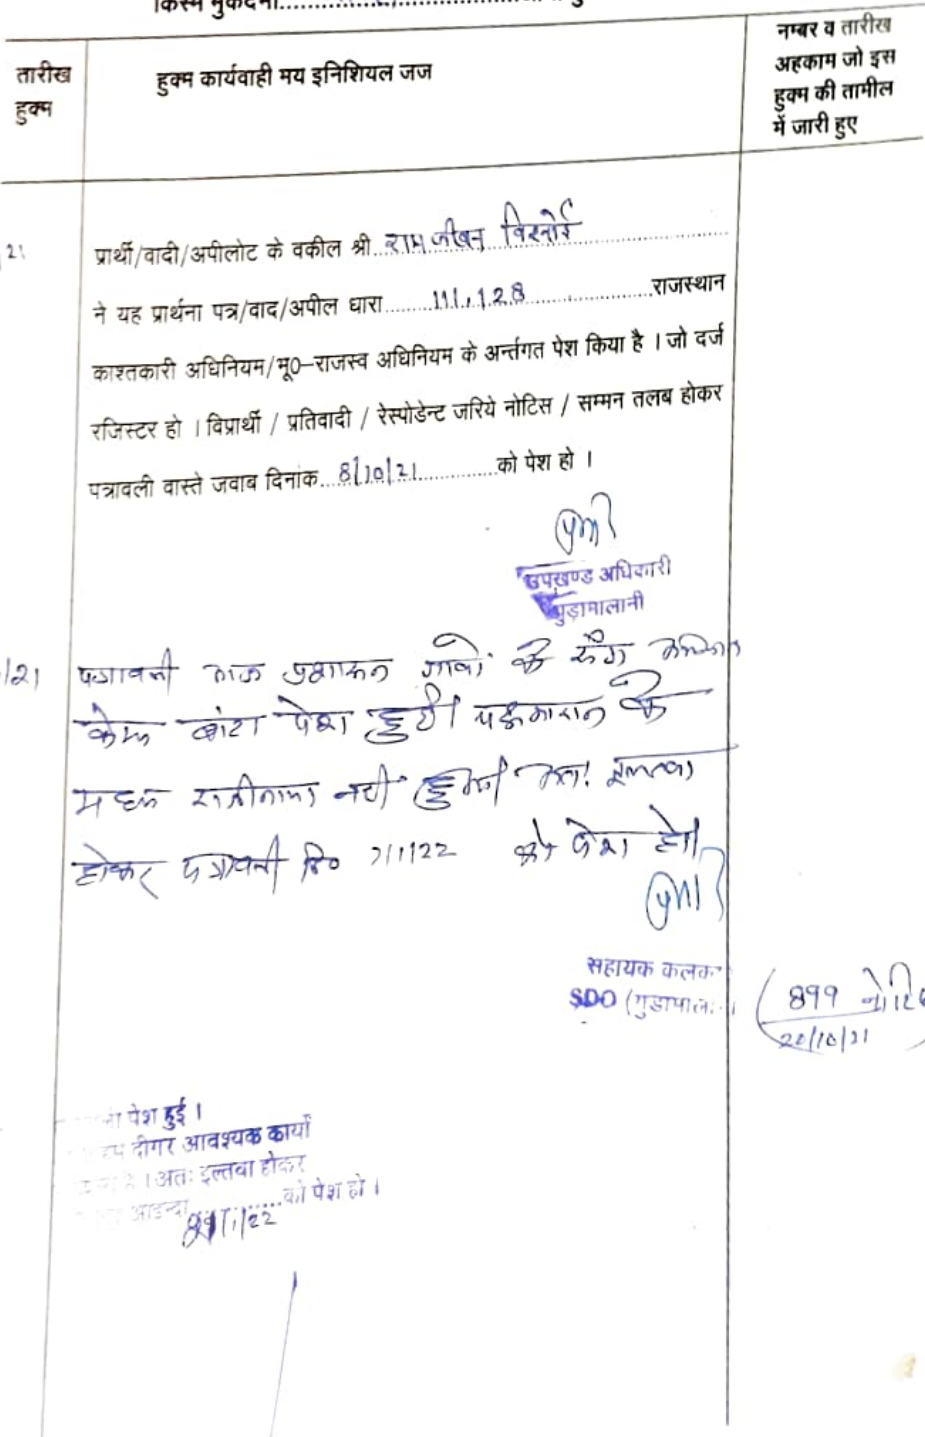 किस्म मुकदमा
तारीख हुक्म
हुक्म कार्यवाही मय इनिशियल जज
नम्बर व तारीख
अहकाम जो इस
हुक्म की तामील
में जारी हुए
21
प्रार्थी/वादी/अपीलोट के वकील श्री रामजीवन विश्नोई
ने यह प्रार्थना पत्र/वाद/अपील धारा 111,128 राजस्थान
काश्तकारी अधिनियम/मू0-राजस्व अधिनियम के अर्न्तगत पेश किया है । जो दर्ज
रजिस्टर हो । विप्रार्थी / प्रतिवादी / रेस्पोडेन्ट जरिये नोटिस / सम्मन तलब होकर
पत्रावली वास्ते जवाब दिनांक 8/10/21 को पेश हो ।
उपखण्ड अधिकारी
गुड़ामालानी
/21 पत्रावली आज प्रशासन गावों के संग
केम्प बांटा पेश हुई। पक्षकारान के
मध्य राजीनामा नहीं हुआ अतः इल्तवा
होकर पत्रावली दि० 7/1/22 को पेश हो।
सहायक कलक
SDO (गुडामाला
899 नोटि
20/10/21
पेश हुई ।
दीगर आवश्यक कार्यों
। अतः इल्तवा होकर
आइन्दा को पेश हो ।
/1/22